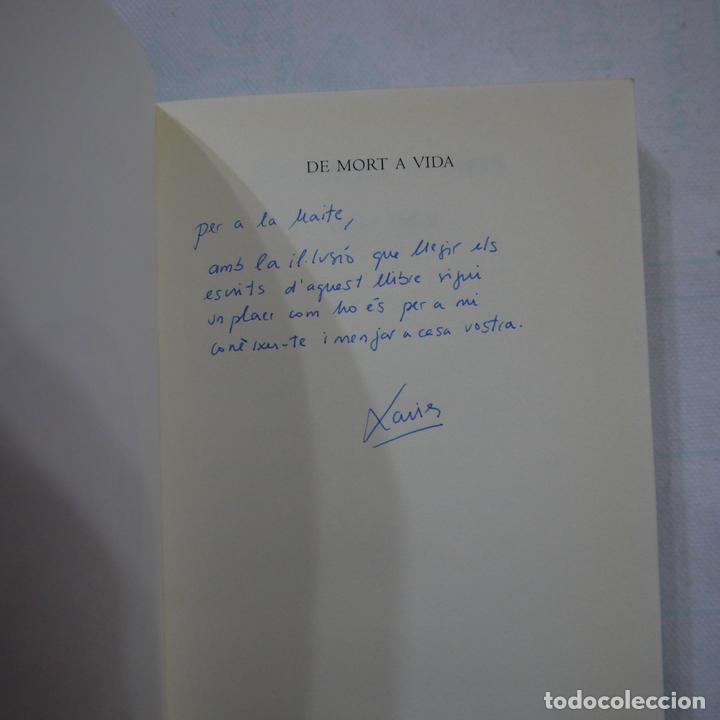 DE MORT A VIDA
per a la Maite,
amb la il·lusió que llegir els
escrits d'aquest llibre sigui
un plaer com ho és per a mi
conèixer-te i menjar a casa vostra.
Xavier
todocoleccion